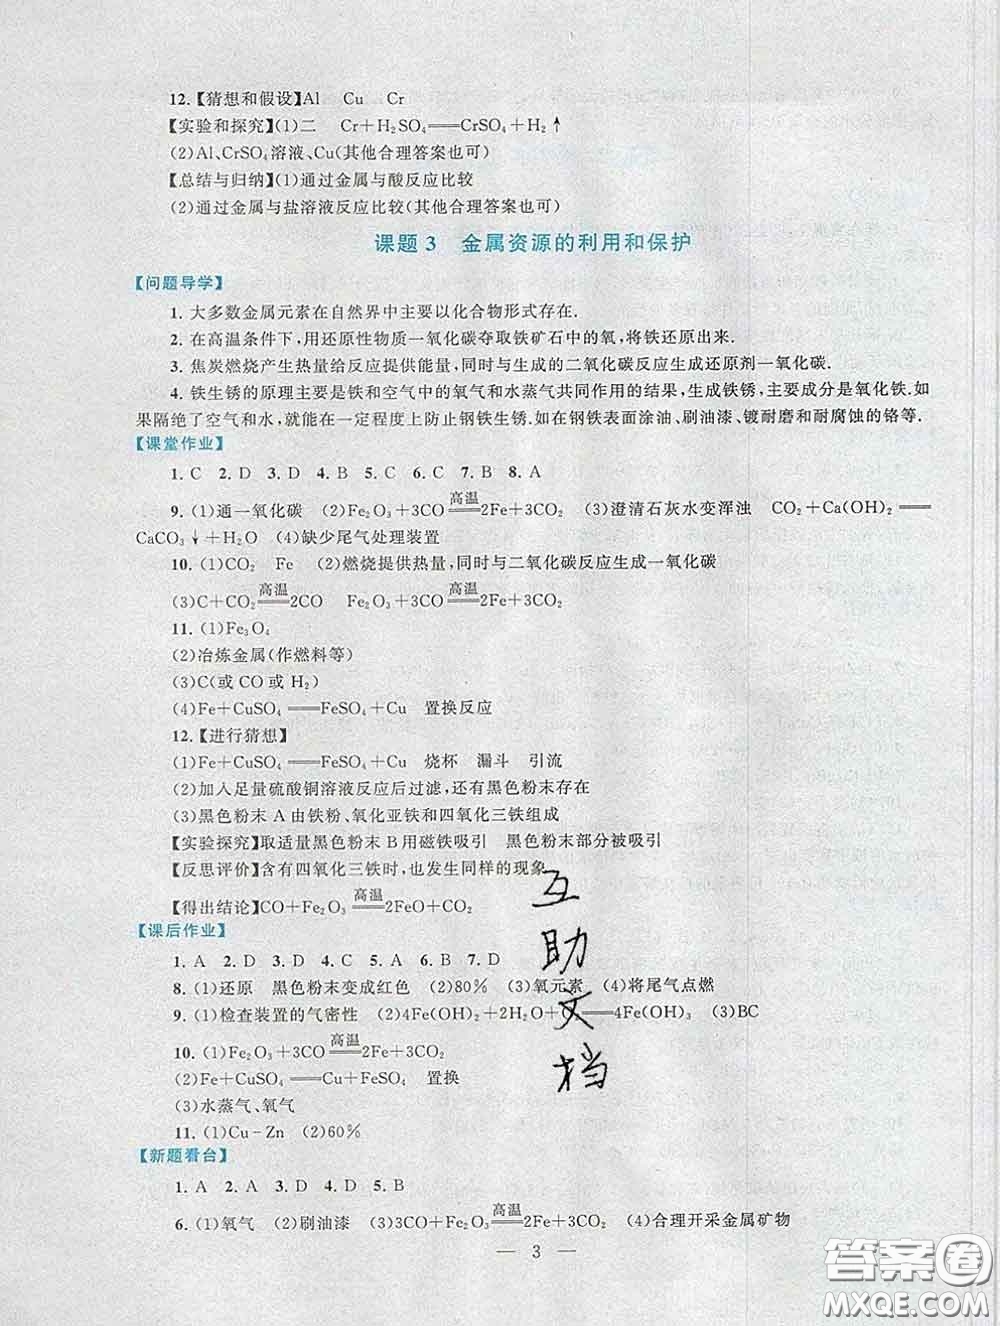 12.【猜想和假设】Al Cu Cr
【实验和探究】(1)二 Cr+H₂SO₄══CrSO₄+H₂↑
(2)Al、CrSO₄溶液、Cu(其他合理答案也可)
【总结与归纳】(1)通过金属与酸反应比较
(2)通过金属与盐溶液反应比较(其他合理答案也可)
课题3 金属资源的利用和保护
【问题导学】
1. 大多数金属元素在自然界中主要以化合物形式存在.
2. 在高温条件下,用还原性物质一氧化碳夺取铁矿石中的氧,将铁还原出来.
3. 焦炭燃烧产生热量给反应提供能量,同时与生成的二氧化碳反应生成还原剂一氧化碳.
4. 铁生锈的原理主要是铁和空气中的氧气和水蒸气共同作用的结果,生成铁锈,主要成分是氧化铁.如
果隔绝了空气和水,就能在一定程度上防止钢铁生锈.如在钢铁表面涂油、刷油漆、镀耐磨和耐腐蚀的铬等.
【课堂作业】
1. C 2. D 3. D 4. B 5. C 6. C 7. B 8. A
9. (1)通一氧化碳 (2)Fe₂O₃+3CO═高温═2Fe+3CO₂ (3)澄清石灰水变浑浊 CO₂+Ca(OH)₂══
CaCO₃↓+H₂O (4)缺少尾气处理装置
10. (1)CO₂ Fe (2)燃烧提供热量,同时与二氧化碳反应生成一氧化碳
(3)C+CO₂═高温═2CO Fe₂O₃+3CO═高温═2Fe+3CO₂
11. (1)Fe₃O₄
(2)冶炼金属(作燃料等)
(3)C(或CO或H₂)
(4)Fe+CuSO₄══FeSO₄+Cu 置换反应
12.【进行猜想】
(1)Fe+CuSO₄══FeSO₄+Cu 烧杯 漏斗 引流
(2)加入足量硫酸铜溶液反应后过滤,还有黑色粉末存在
(3)黑色粉末A由铁粉、氧化亚铁和四氧化三铁组成
【实验探究】取适量黑色粉末B用磁铁吸引 黑色粉末部分被吸引
【反思评价】含有四氧化三铁时,也发生同样的现象
【得出结论】CO+Fe₂O₃═高温═2FeO+CO₂
【课后作业】
1. A 2. D 3. D 4. C 5. A 6. B 7. D
8. (1)还原 黑色粉末变成红色 (2)80% (3)氧元素 (4)将尾气点燃
9. (1)检查装置的气密性 (2)4Fe(OH)₂+2H₂O+O₂══4Fe(OH)₃ (3)BC
10. (1)Fe₂O₃+3CO═高温═2Fe+3CO₂
(2)Fe+CuSO₄══Cu+FeSO₄ 置换
(3)水蒸气、氧气
11. (1)Cu-Zn (2)60%
【新题看台】
1. A 2. A 3. D 4. D 5. B
6. (1)氧气 (2)刷油漆 (3)3CO+Fe₂O₃═高温═2Fe+3CO₂ (4)合理开采金属矿物
— 3 —
互助文档
答案圈
MXQE.COM